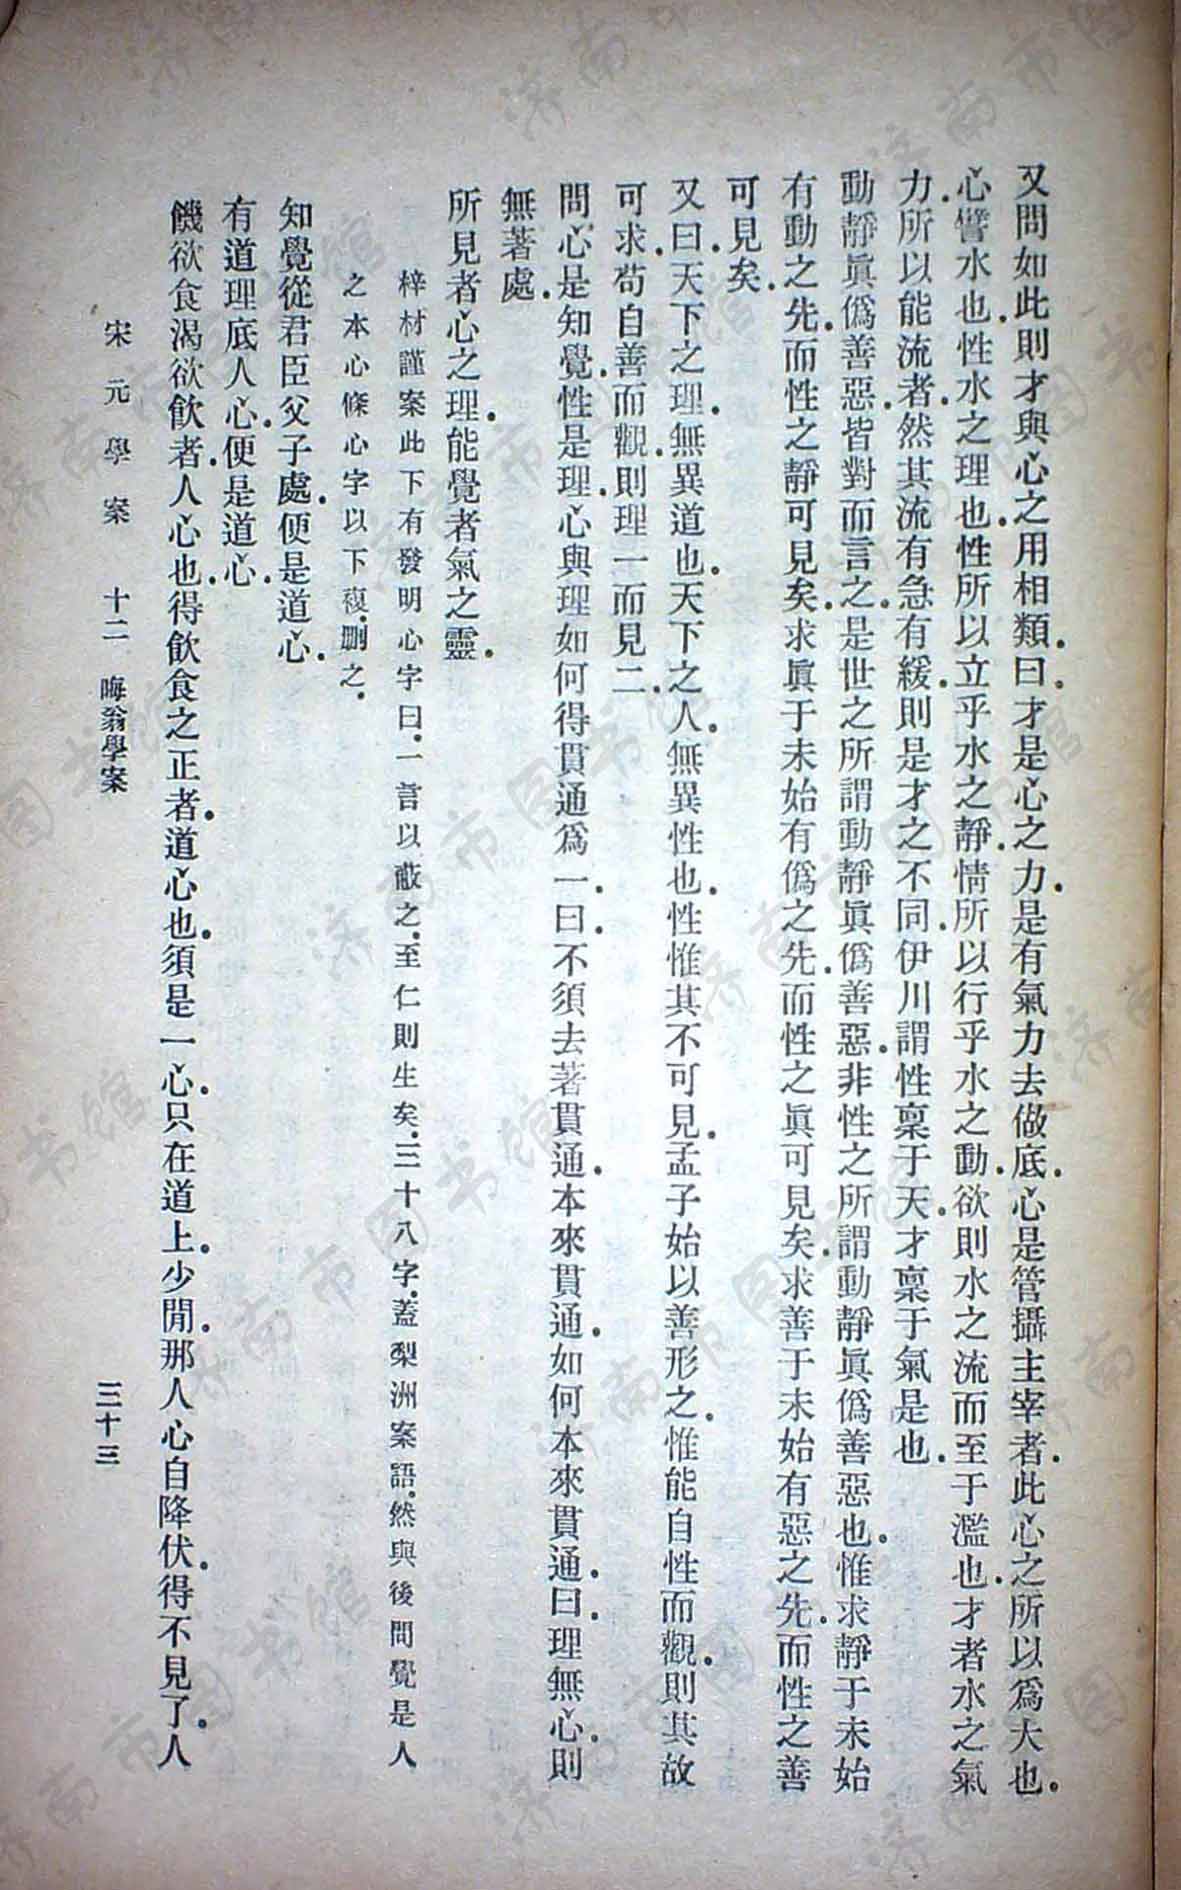 又問如此則才與心之用相類．曰．才是心之力．是有氣力去做底．心是管攝主宰者．此心之所以爲大也．
心．譬水也．性．水之理也．性所以立乎水之靜．情所以行乎水之動．欲則水之流而至于濫也．才者水之氣
力．所以能流者．然其流有急有緩．則是才之不同．伊川謂性稟于天．才稟于氣．是也．
動靜眞僞善惡．皆對而言之．是世之所謂動靜眞僞善惡．非性之所謂動靜眞僞善惡也．惟求靜于未始
有動之先．而性之靜可見矣．求眞于未始有僞之先．而性之眞可見矣．求善于未始有惡之先．而性之善
可見矣．
又曰．天下之理．無異道也．天下之人．無異性也．性惟其不可見．孟子始以善形之．惟能自性而觀．則其故
可求．苟自善而觀．則理一而見二．
問心是知覺．性是理．心與理如何得貫通爲一．曰．不須去著貫通．本來貫通．如何本來貫通．曰．理無心．則
無著處．
所見者．心之理．能覺者．氣之靈．
梓材謹案此下有發明心字曰．一言以蔽之．至仁則生矣．三十八字．蓋梨洲案語．然與後問覺是人
之本心條心字以下複．刪之．
知覺從君臣父子處．便是道心．
有道理底人心．便是道心．
饑欲食渴欲飲者．人心也．得飲食之正者．道心也．須是一心．只在道上．少閒．那人心自降伏．得不見了．人
宋元學案 十二 晦翁學案 三十三
济南市图书馆